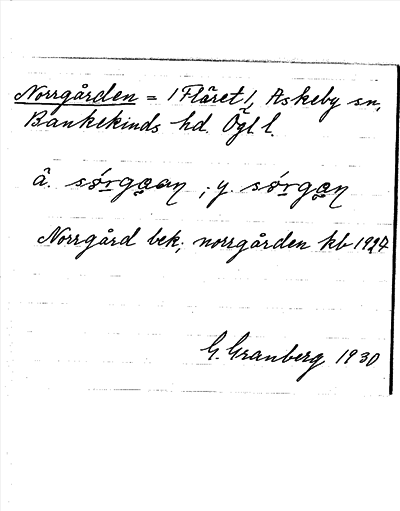 Norrgården = /Flåret/, Askeby sn,
Bankekinds hd. Ögl l.
å. sórgaan ; y. sórgan
Norrgård bek; norrgården kb 1927
G. Granberg 1930